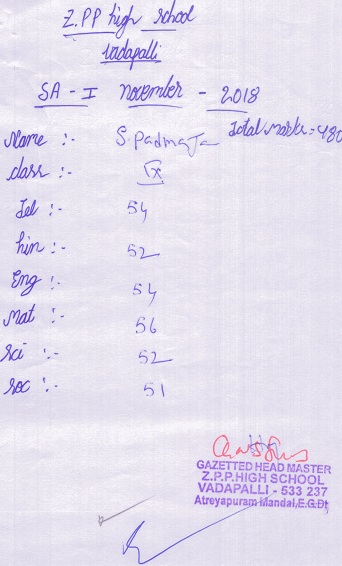 Z.PP high school
Vadapalli
SA - I november - 2018
Total marks = 480
Name :- S. Padmaja
class :- IX
Tel :- 54
hin :- 52
Eng :- 54
Mat :- 56
Sci :- 52
soc :- 51
GAZETTED HEAD MASTER
Z.P.P.HIGH SCHOOL
VADAPALLI - 533 237
Atreyapuram Mandal, E.G.Dt